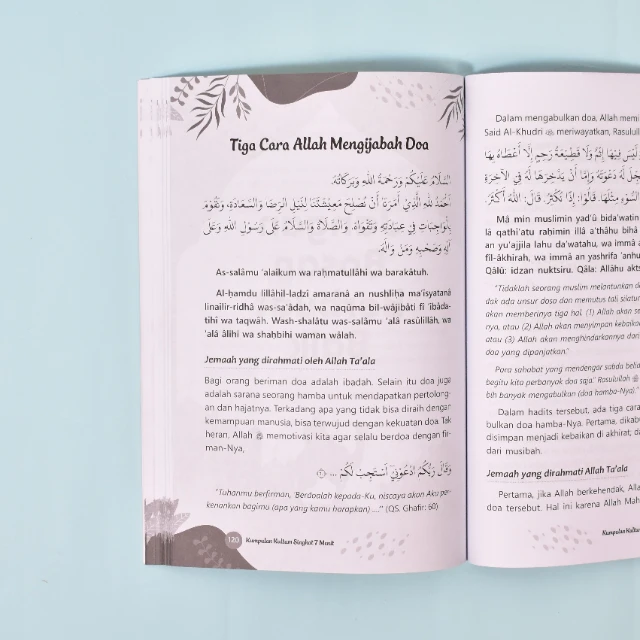 Tiga Cara Allah Mengijabah Doa
السَّلَامُ عَلَيْكُمْ وَرَحْمَةُ اللهِ وَبَرَكَاتُهُ.
الْحَمْدُ لِلهِ الَّذِيْ أَمَرَنَا أَنْ نُصْلِحَ مَعِيْشَتَنَا لِنَيْلِ الرِّضَا وَالسَّعَادَةِ، وَنَقُوْمَ
بِالْوَاجِبَاتِ فِي عِبَادَتِهِ وَتَقْوَاهُ. وَالصَّلَاةُ وَالسَّلَامُ عَلَى رَسُوْلِ اللهِ وَعَلَى
آلِهِ وَصَحْبِهِ وَمَنْ وَالَاهُ.
As-salāmu 'alaikum wa raḥmatullāhi wa barakātuh.
Al-ḥamdu lillāhil-ladzī amaranā an nushliḥa ma'īsyatanā
linailir-ridhā was-sa'ādah, wa naqūma bil-wājibāti fī 'ibāda-
tihī wa taqwāh. Wash-shalātu was-salāmu 'alā rasūlillāh, wa
'alā ālihi wa shaḥbihi waman wālah.
Jemaah yang dirahmati oleh Allah Ta'ala
Bagi orang beriman doa adalah ibadah. Selain itu doa juga
adalah sarana seorang hamba untuk mendapatkan pertolong-
an dan hajatnya. Terkadang apa yang tidak bisa diraih dengan
kemampuan manusia, bisa terwujud dengan kekuatan doa. Tak
heran, Allah ﷻ memotivasi kita agar selalu berdoa dengan fir-
man-Nya,
وَقَالَ رَبُّكُمُ ادْعُوْنِيْٓ اَسْتَجِبْ لَكُمْ ...
"Tuhanmu berfirman, 'Berdoalah kepada-Ku, niscaya akan Aku per-
kenankan bagimu (apa yang kamu harapkan) ....'" (QS. Ghafir: 60)
120 Kumpulan Kultum Singkat 7 Menit
Dalam mengabulkan doa, Allah memi
Said Al-Khudri meriwayatkan, Rasulull
لَيْسَ فِيْهَا إِثْمٌ وَلَا قَطِيْعَةُ رَحِمٍ إِلَّا أَعْطَاهُ بِهَا
لَهُ دَعْوَتَهُ وَإِمَّا أَنْ يَدَّخِرَهَا لَهُ فِي الْآخِرَةِ
السُّوْءِ مِثْلَهَا. قَالُوْا: إِذًا نُكْثِرُ. قَالَ: اللهُ أَكْثَرُ.
Mā min muslimin yad'ū bida'watin
lā qathī'atu raḥimin illā a'thāhu bihā
an yu'ajjila lahu da'watahu, wa immā
fil-ākhirah, wa immā an yashrifa 'anhu
Qālū: idzan nuktsiru. Qāla: Allāhu akts
"Tidaklah seorang muslim melantunkan d
dak ada unsur dosa dan memutus tali silatu
akan memberinya tiga hal. (1) Allah akan se
nya, atau (2) Allah akan menyimpan kebaikan
atau (3) Allah akan menghindarkannya dari
doa yang dipanjatkan."
Para sahabat yang mendengar sabda beliau
begitu kita perbanyak doa saja." Rasulullah
bih banyak mengabulkan (doa hamba-Nya)."
Dalam hadits tersebut, ada tiga cara
bulkan doa hamba-Nya. Pertama, dikabu
disimpan menjadi kebaikan di akhirat; da
dari musibah.
Jemaah yang dirahmati Allah Ta'ala
Pertama, jika Allah berkehendak, Alla
doa tersebut. Hal ini karena Allah Mah
Kumpulan Kultum